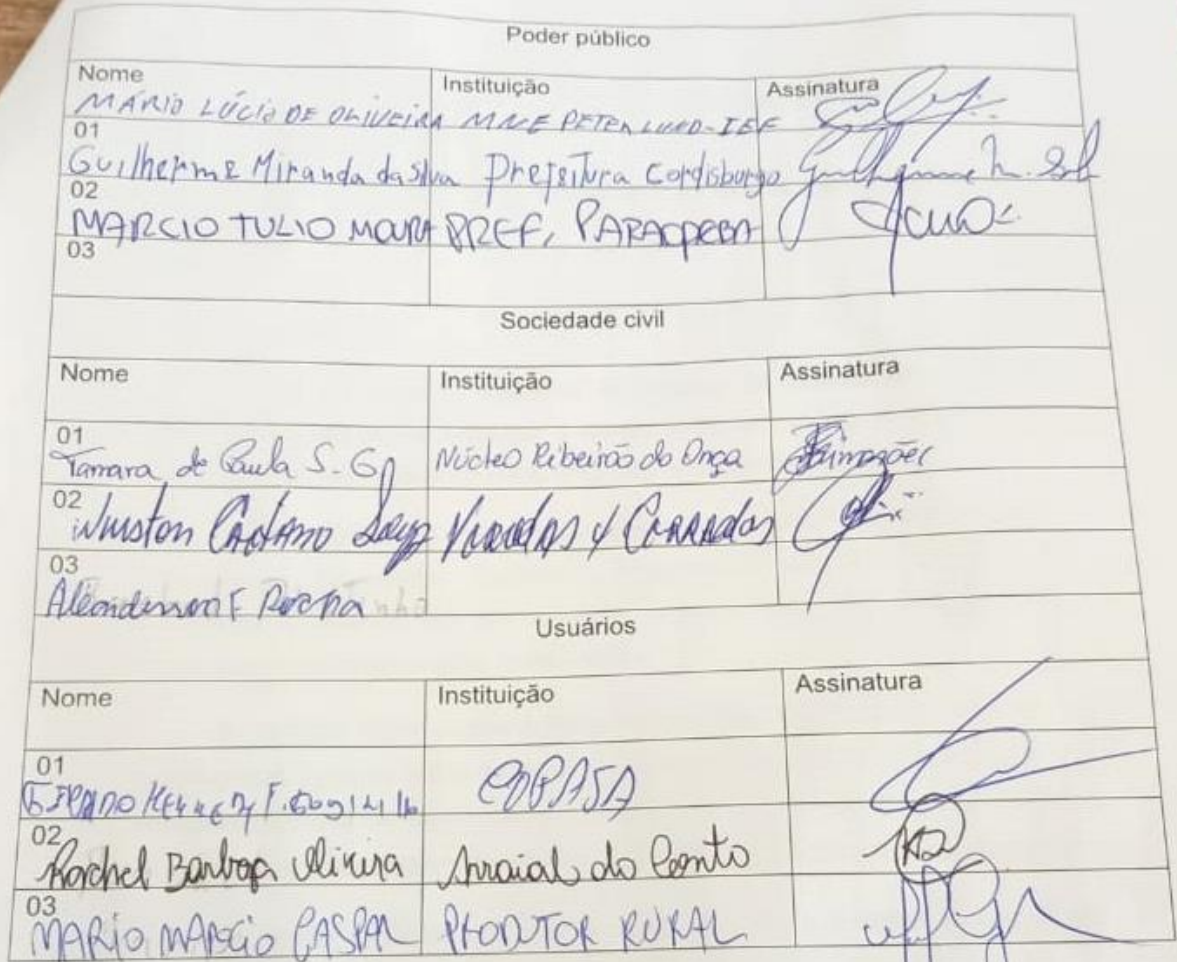 Poder público
Nome Instituição Assinatura
MÁRIO LÚCIO DE OLIVEIRA MNE PETER LUND-IEF
01
Guilherme Miranda da Silva Prefeitura Cordisburgo
02
MARCIO TULIO MOURA PREF, PARAOPEBA
03
Sociedade civil
Nome Instituição Assinatura
01
Tamara de Paula S. G Núcleo Ribeirão do Onça
02
Caetano Veredas y Cerrados
03
F Rocha
Usuários
Nome Instituição Assinatura
01
COPASA
02
Rachel Barbosa Oliveira Arraial do Conto
03
MARIO MARCIO GASPAR PRODUTOR RURAL